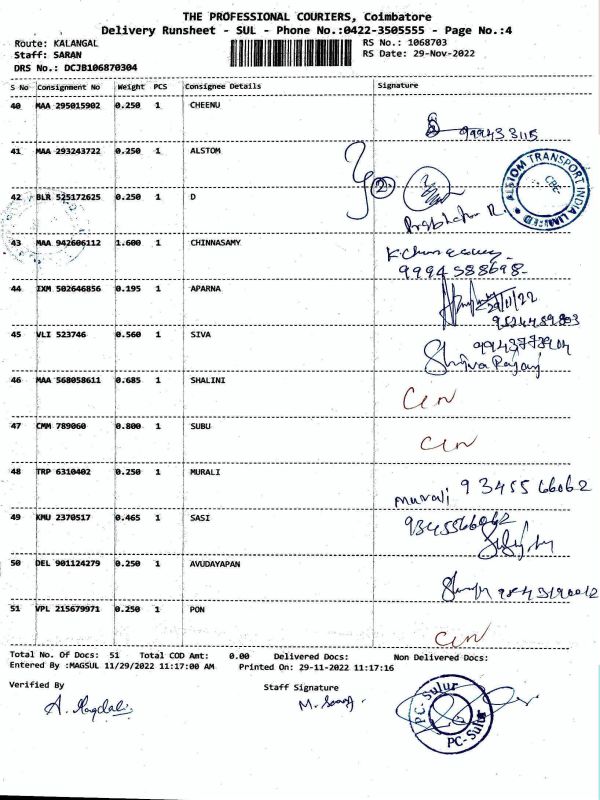 THE PROFESSIONAL COURIERS, Coimbatore
Delivery Runsheet - SUL - Phone No.:0422-3505555 - Page No.:4
Route: KALANGAL
RS No.: 1068703
Staff: SARAN
RS Date: 29-Nov-2022
DRS No.: DCJB106870304
S No Consignment No Weight PCS Consignee Details Signature
40 MAA 295015902 0.250 1 CHEENU
41 MAA 293243722 0.250 1 ALSTOM
2
ALSTOM TRANSPORT INDIA LIMITED
CBE.
42 BLR 525172625 0.250 1 D
Prabhakar R.
43 MAA 942606112 1.600 1 CHINNASAMY
9994588698-
44 IXM 502646856 0.195 1 APARNA
29/11/22
45 VLI 523746 0.560 1 SIVA
46 MAA 568058611 0.685 1 SHALINI
47 CMM 789060 0.800 1 SUBU
48 TRP 6310402 0.250 1 MURALI
Murali 9345566062
49 KMU 2370517 0.465 1 SASI
9345566062
50 DEL 901124279 0.250 1 AVUDAYAPAN
51 VPL 215679971 0.250 1 PON
Total No. Of Docs: 51 Total COD Amt: 0.00 Delivered Docs: Non Delivered Docs:
Entered By :MAGSUL 11/29/2022 11:17:00 AM Printed On: 29-11-2022 11:17:16
Verified By
Staff Signature
A. Magdali
PC-Sulur
PC-Sulur